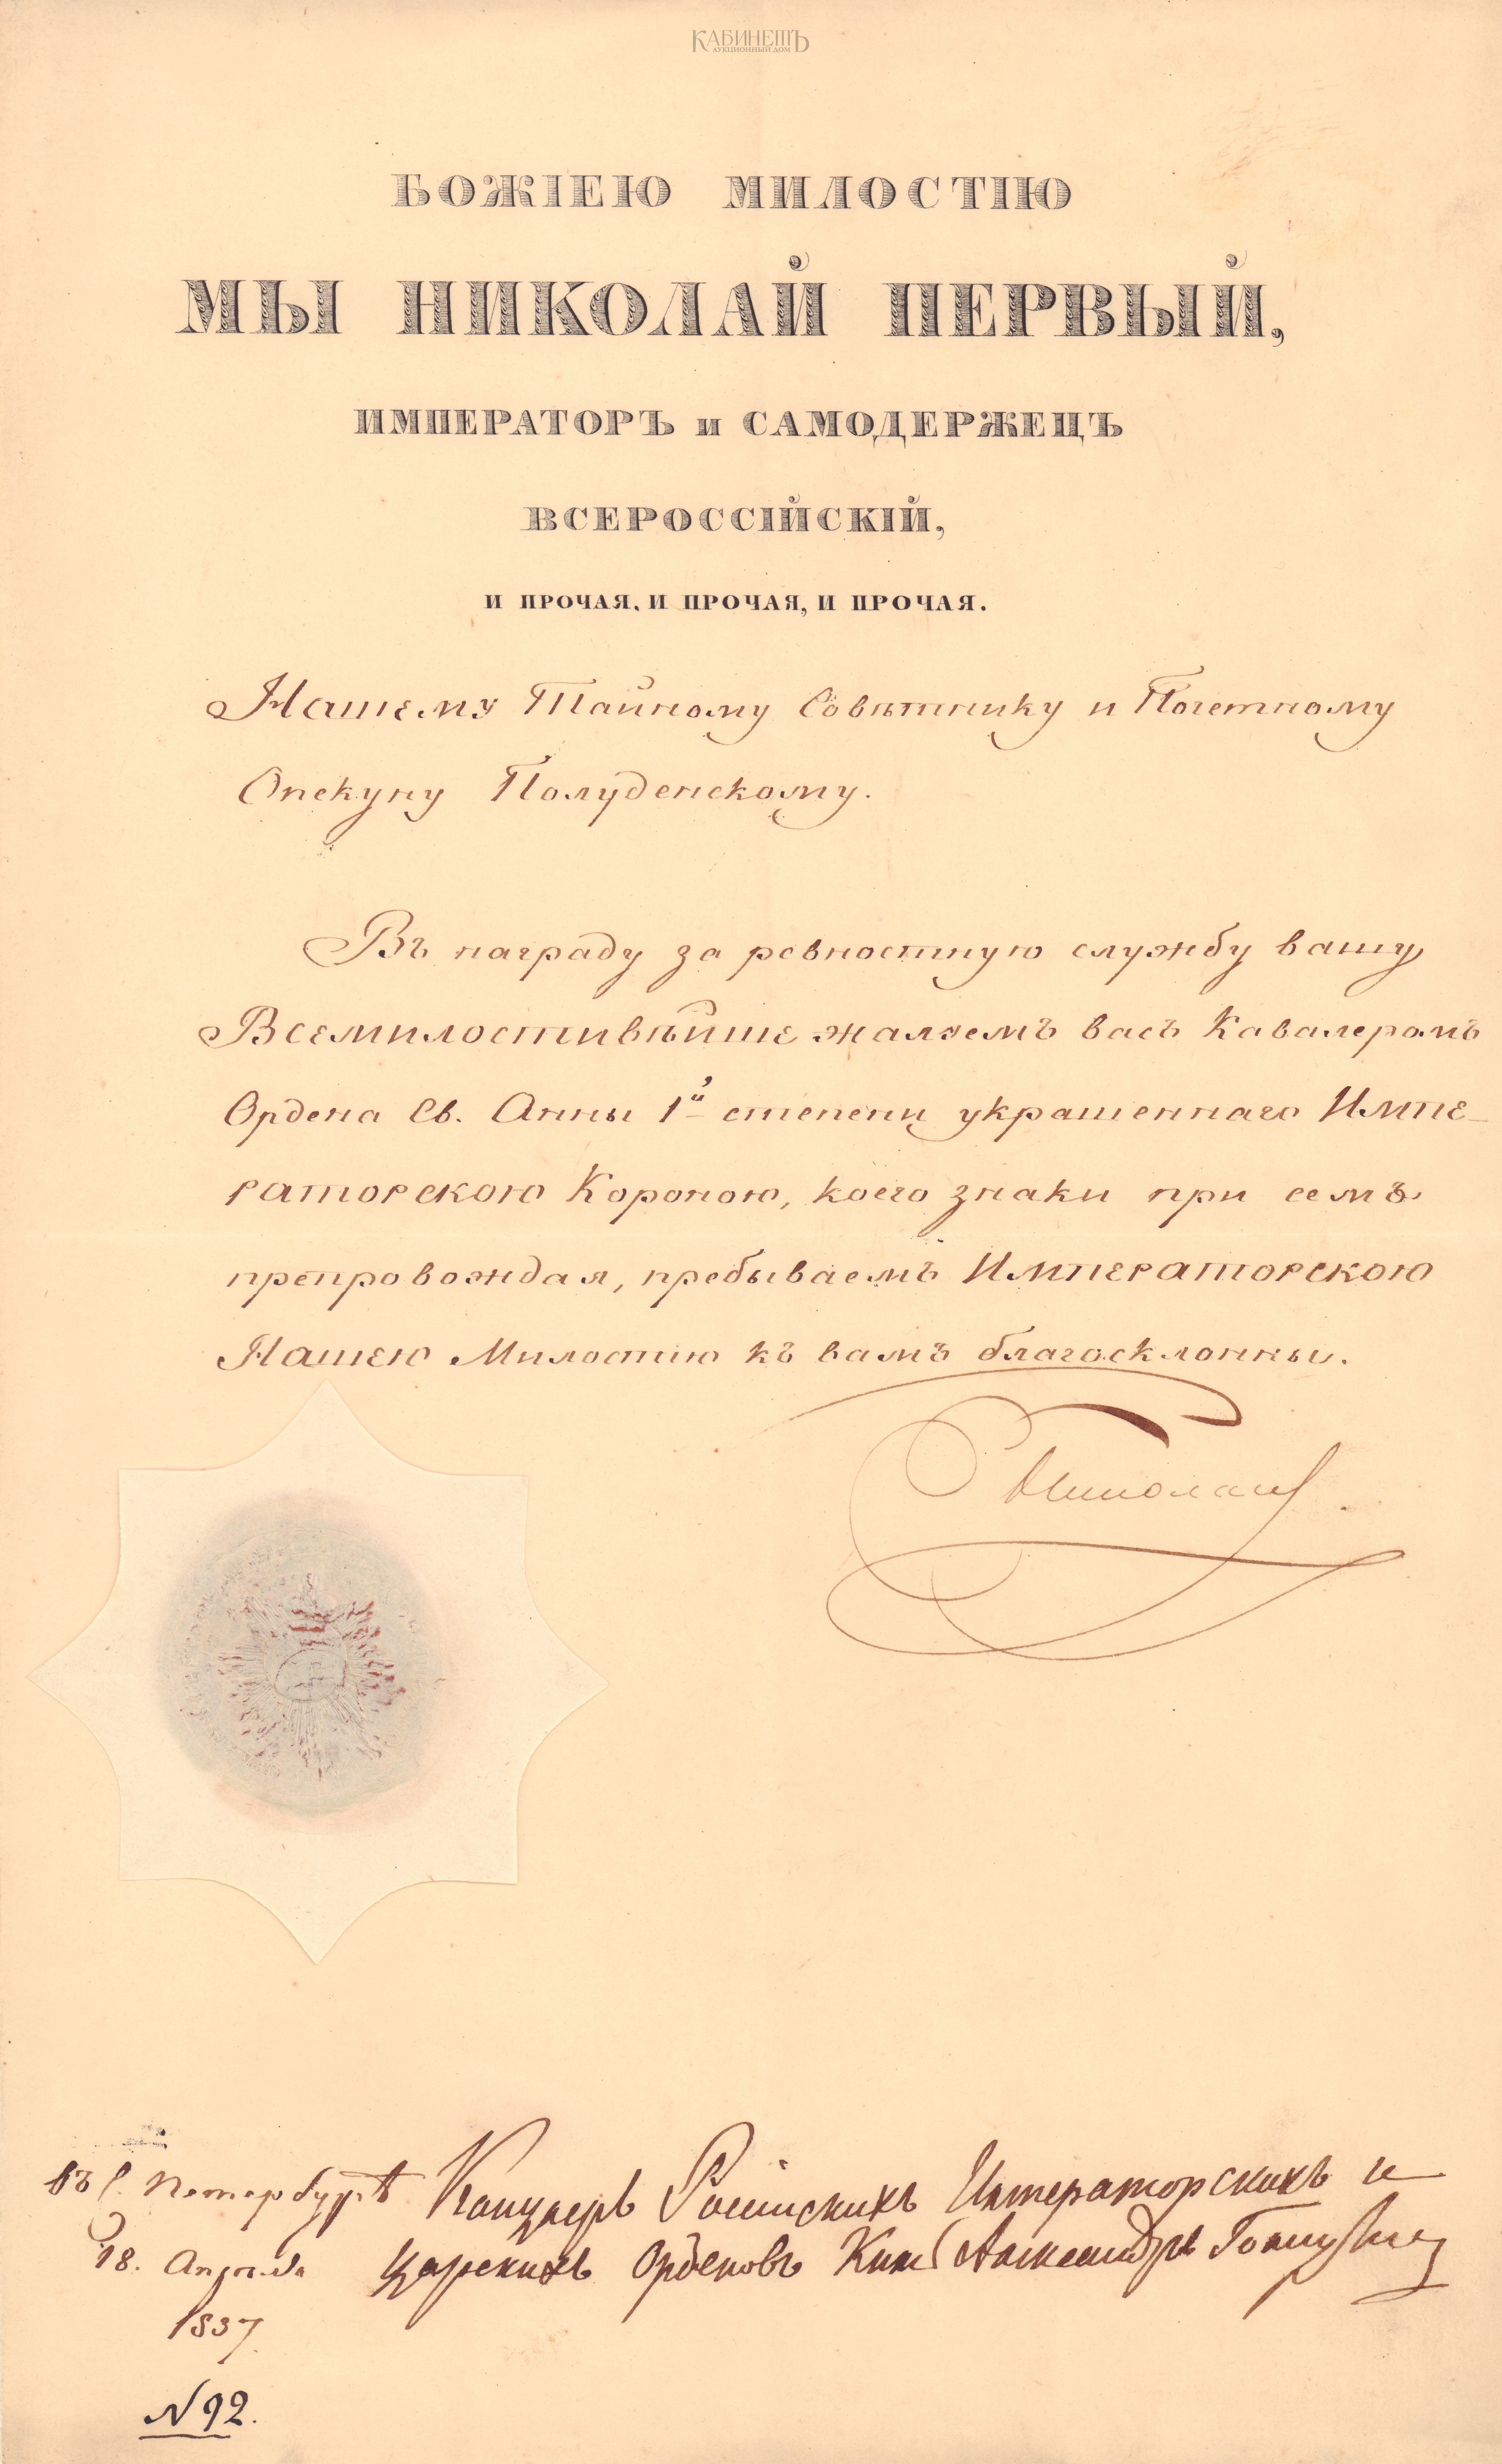 КАБИНЕТЪ
АУКЦИОННЫЙ ДОМ
БОЖІЕЮ МИЛОСТІЮ
МЫ НИКОЛАЙ ПЕРВЫЙ,
ИМПЕРАТОРЪ и САМОДЕРЖЕЦЪ
ВСЕРОССІЙСКІЙ,
И ПРОЧАЯ, И ПРОЧАЯ, И ПРОЧАЯ.
Нашему Тайному Совѣтнику и Почетному
Опекуну Полуденскому.
Въ награду за ревностную службу вашу
Всемилостивѣйше жалуемъ васъ Кавалеромъ
Ордена Св. Анны 1й степени украшеннаго Импе-
раторскою Короною, коего знаки при семъ
препровождая, пребываемъ Императорскою
Нашею Милостію къ вамъ благосклонны.
Николай
въ С. Петербургѣ
18. Апрѣля
1837
Канцлеръ Россійскихъ Императорскихъ и
Царскихъ Орденовъ Князь Александръ Голицынъ
N 92.